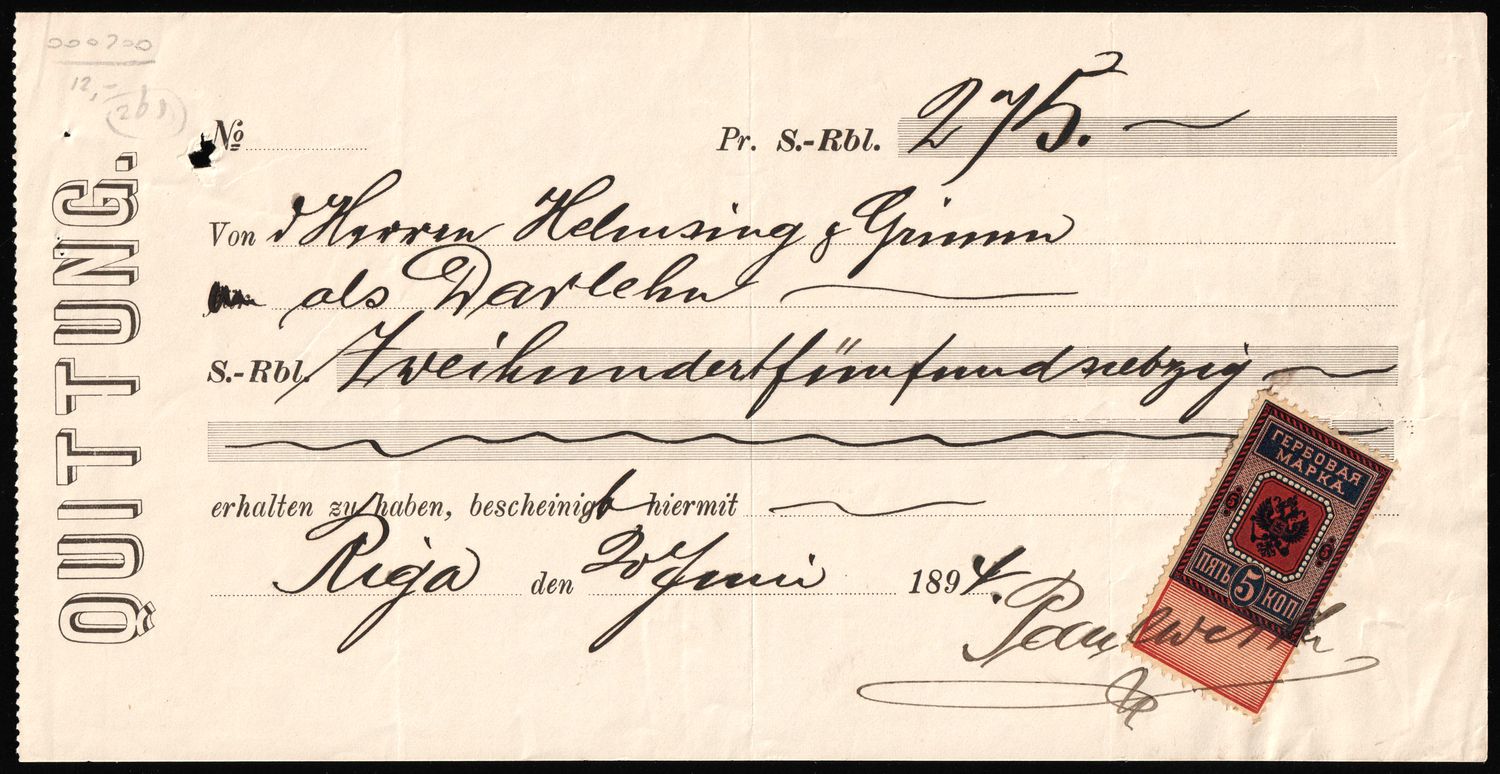 000700
12,-
QUITTUNG.
№
Pr. S.-Rbl. 275.
Von d Herren Helmsing & Grimm
als Darlehn
S.-Rbl. Zweihundertfünfundsiebzig
erhalten zu haben, bescheinigt hiermit
Riga den 20 Juni 1894.
ГЕРБОВАЯ
МАРКА
5 5
ПЯТЬ 5 КОП